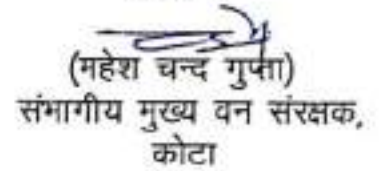 (महेश चन्द गुप्ता)
संभागीय मुख्य वन संरक्षक,
कोटा